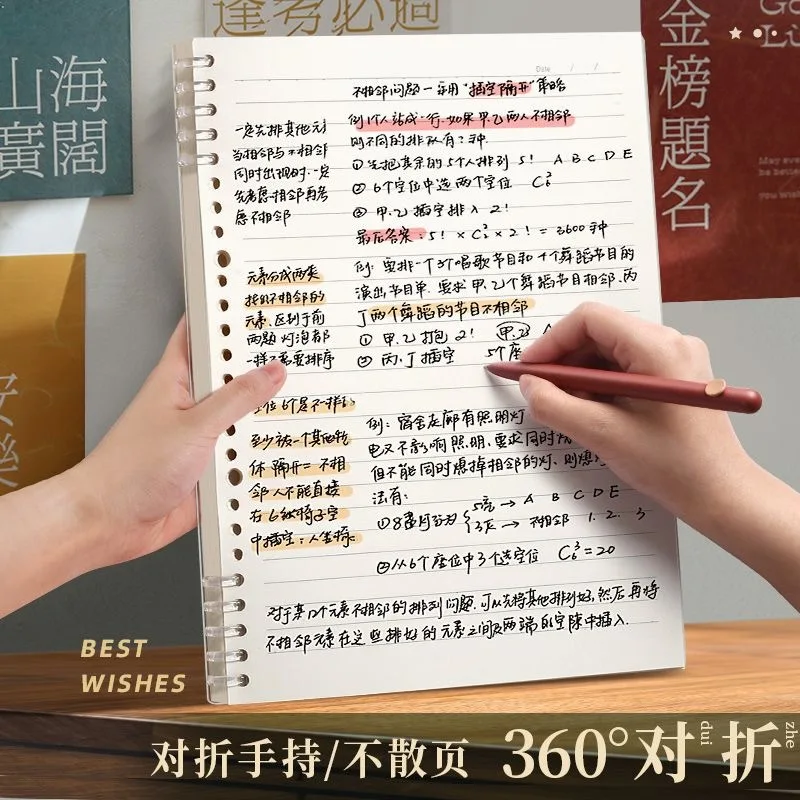 逢考必過
山海
廣闊
金榜題名
Go
Lu
May eve
be bette
you wish
安
樂
Date / /
不相邻问题一采用"插空隔开"策略
一定先排其他元素
当相邻与不相邻
同时出现时,一定
先考虑相邻再考
虑不相邻
例:7人站成一行,如果甲乙两人不相邻
则不同的排队有?种
①先把其余的5个人排列 5! A B C D E
②6个空位中选两个空位 C₆²
③甲、乙插空排入 2!
最后答案:5! × C₆² × 2! = 3600种
元素分成两类
找出不相邻的
元素,区别于前
两题 灯泡都
一样不需要排序
例:要排一个3个唱歌节目和4个舞蹈节目的
演出节目单,要求甲、乙2个舞蹈节目相邻、丙
丁两个舞蹈的节目不相邻
①甲、乙抱 2! 甲、乙 A
②丙、丁插空 5个座
座位6个是不一样的
至少被一个其他物
体隔开=不相
邻人不能直接
在6纵椅子空
中插空:人坐椅
例:宿舍走廊有照明灯
电又不影响照明,要求同时
但不能同时熄掉相邻的灯,则熄
法有:
①8盏灯分为 5亮→A B C D E
3灭→不相邻 1. 2. 3
②从6个座位中3个选空位 C₆³=20
对于某几个元素不相邻的排列问题,可以先将其他排列好,然后再将
不相邻元素在这些排好的元素之间及两端的空隙中插入.
BEST
WISHES
对折手持/不散页 360°对折
dui zhe